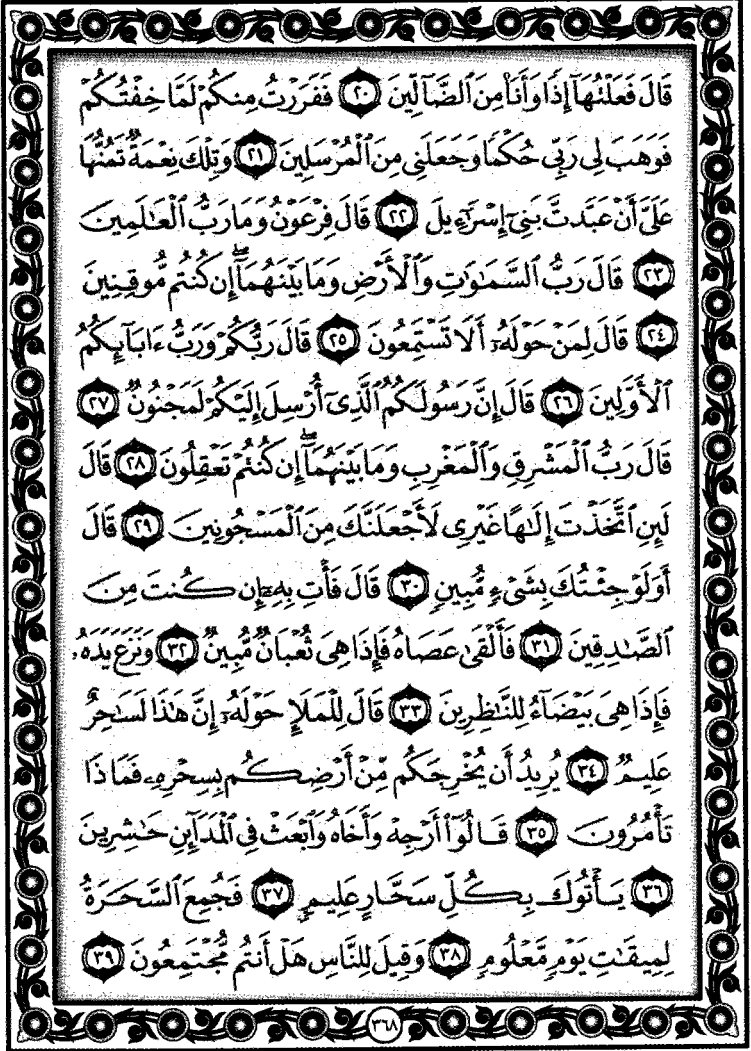 قَالَ فَعَلْتُهَآ إِذًا وَأَنَا۠ مِنَ ٱلضَّآلِّينَ ٢٠ فَفَرَرْتُ مِنكُمْ لَمَّا خِفْتُكُمْ
فَوَهَبَ لِى رَبِّى حُكْمًا وَجَعَلَنِى مِنَ ٱلْمُرْسَلِينَ ٢١ وَتِلْكَ نِعْمَةٌ تَمُنُّهَا
عَلَىَّ أَنْ عَبَّدتَّ بَنِىٓ إِسْرَٰٓءِيلَ ٢٢ قَالَ فِرْعَوْنُ وَمَا رَبُّ ٱلْعَٰلَمِينَ
٢٣ قَالَ رَبُّ ٱلسَّمَٰوَٰتِ وَٱلْأَرْضِ وَمَا بَيْنَهُمَآ ۖ إِن كُنتُم مُّوقِنِينَ
٢٤ قَالَ لِمَنْ حَوْلَهُۥٓ أَلَا تَسْتَمِعُونَ ٢٥ قَالَ رَبُّكُمْ وَرَبُّ ءَابَآئِكُمُ
ٱلْأَوَّلِينَ ٢٦ قَالَ إِنَّ رَسُولَكُمُ ٱلَّذِىٓ أُرْسِلَ إِلَيْكُمْ لَمَجْنُونٌ ٢٧
قَالَ رَبُّ ٱلْمَشْرِقِ وَٱلْمَغْرِبِ وَمَا بَيْنَهُمَآ ۖ إِن كُنتُمْ تَعْقِلُونَ ٢٨ قَالَ
لَئِنِ ٱتَّخَذْتَ إِلَٰهًا غَيْرِى لَأَجْعَلَنَّكَ مِنَ ٱلْمَسْجُونِينَ ٢٩ قَالَ
أَوَلَوْ جِئْتُكَ بِشَىْءٍ مُّبِينٍ ٣٠ قَالَ فَأْتِ بِهِۦٓ إِن كُنتَ مِنَ
ٱلصَّٰدِقِينَ ٣١ فَأَلْقَىٰ عَصَاهُ فَإِذَا هِىَ ثُعْبَانٌ مُّبِينٌ ٣٢ وَنَزَعَ يَدَهُۥ
فَإِذَا هِىَ بَيْضَآءُ لِلنَّٰظِرِينَ ٣٣ قَالَ لِلْمَلَإِ حَوْلَهُۥٓ إِنَّ هَٰذَا لَسَٰحِرٌ
عَلِيمٌ ٣٤ يُرِيدُ أَن يُخْرِجَكُم مِّنْ أَرْضِكُم بِسِحْرِهِۦ فَمَاذَا
تَأْمُرُونَ ٣٥ قَالُوٓا۟ أَرْجِهْ وَأَخَاهُ وَٱبْعَثْ فِى ٱلْمَدَآئِنِ حَٰشِرِينَ
٣٦ يَأْتُوكَ بِكُلِّ سَحَّارٍ عَلِيمٍ ٣٧ فَجُمِعَ ٱلسَّحَرَةُ
لِمِيقَٰتِ يَوْمٍ مَّعْلُومٍ ٣٨ وَقِيلَ لِلنَّاسِ هَلْ أَنتُم مُّجْتَمِعُونَ ٣٩
٣٦٨